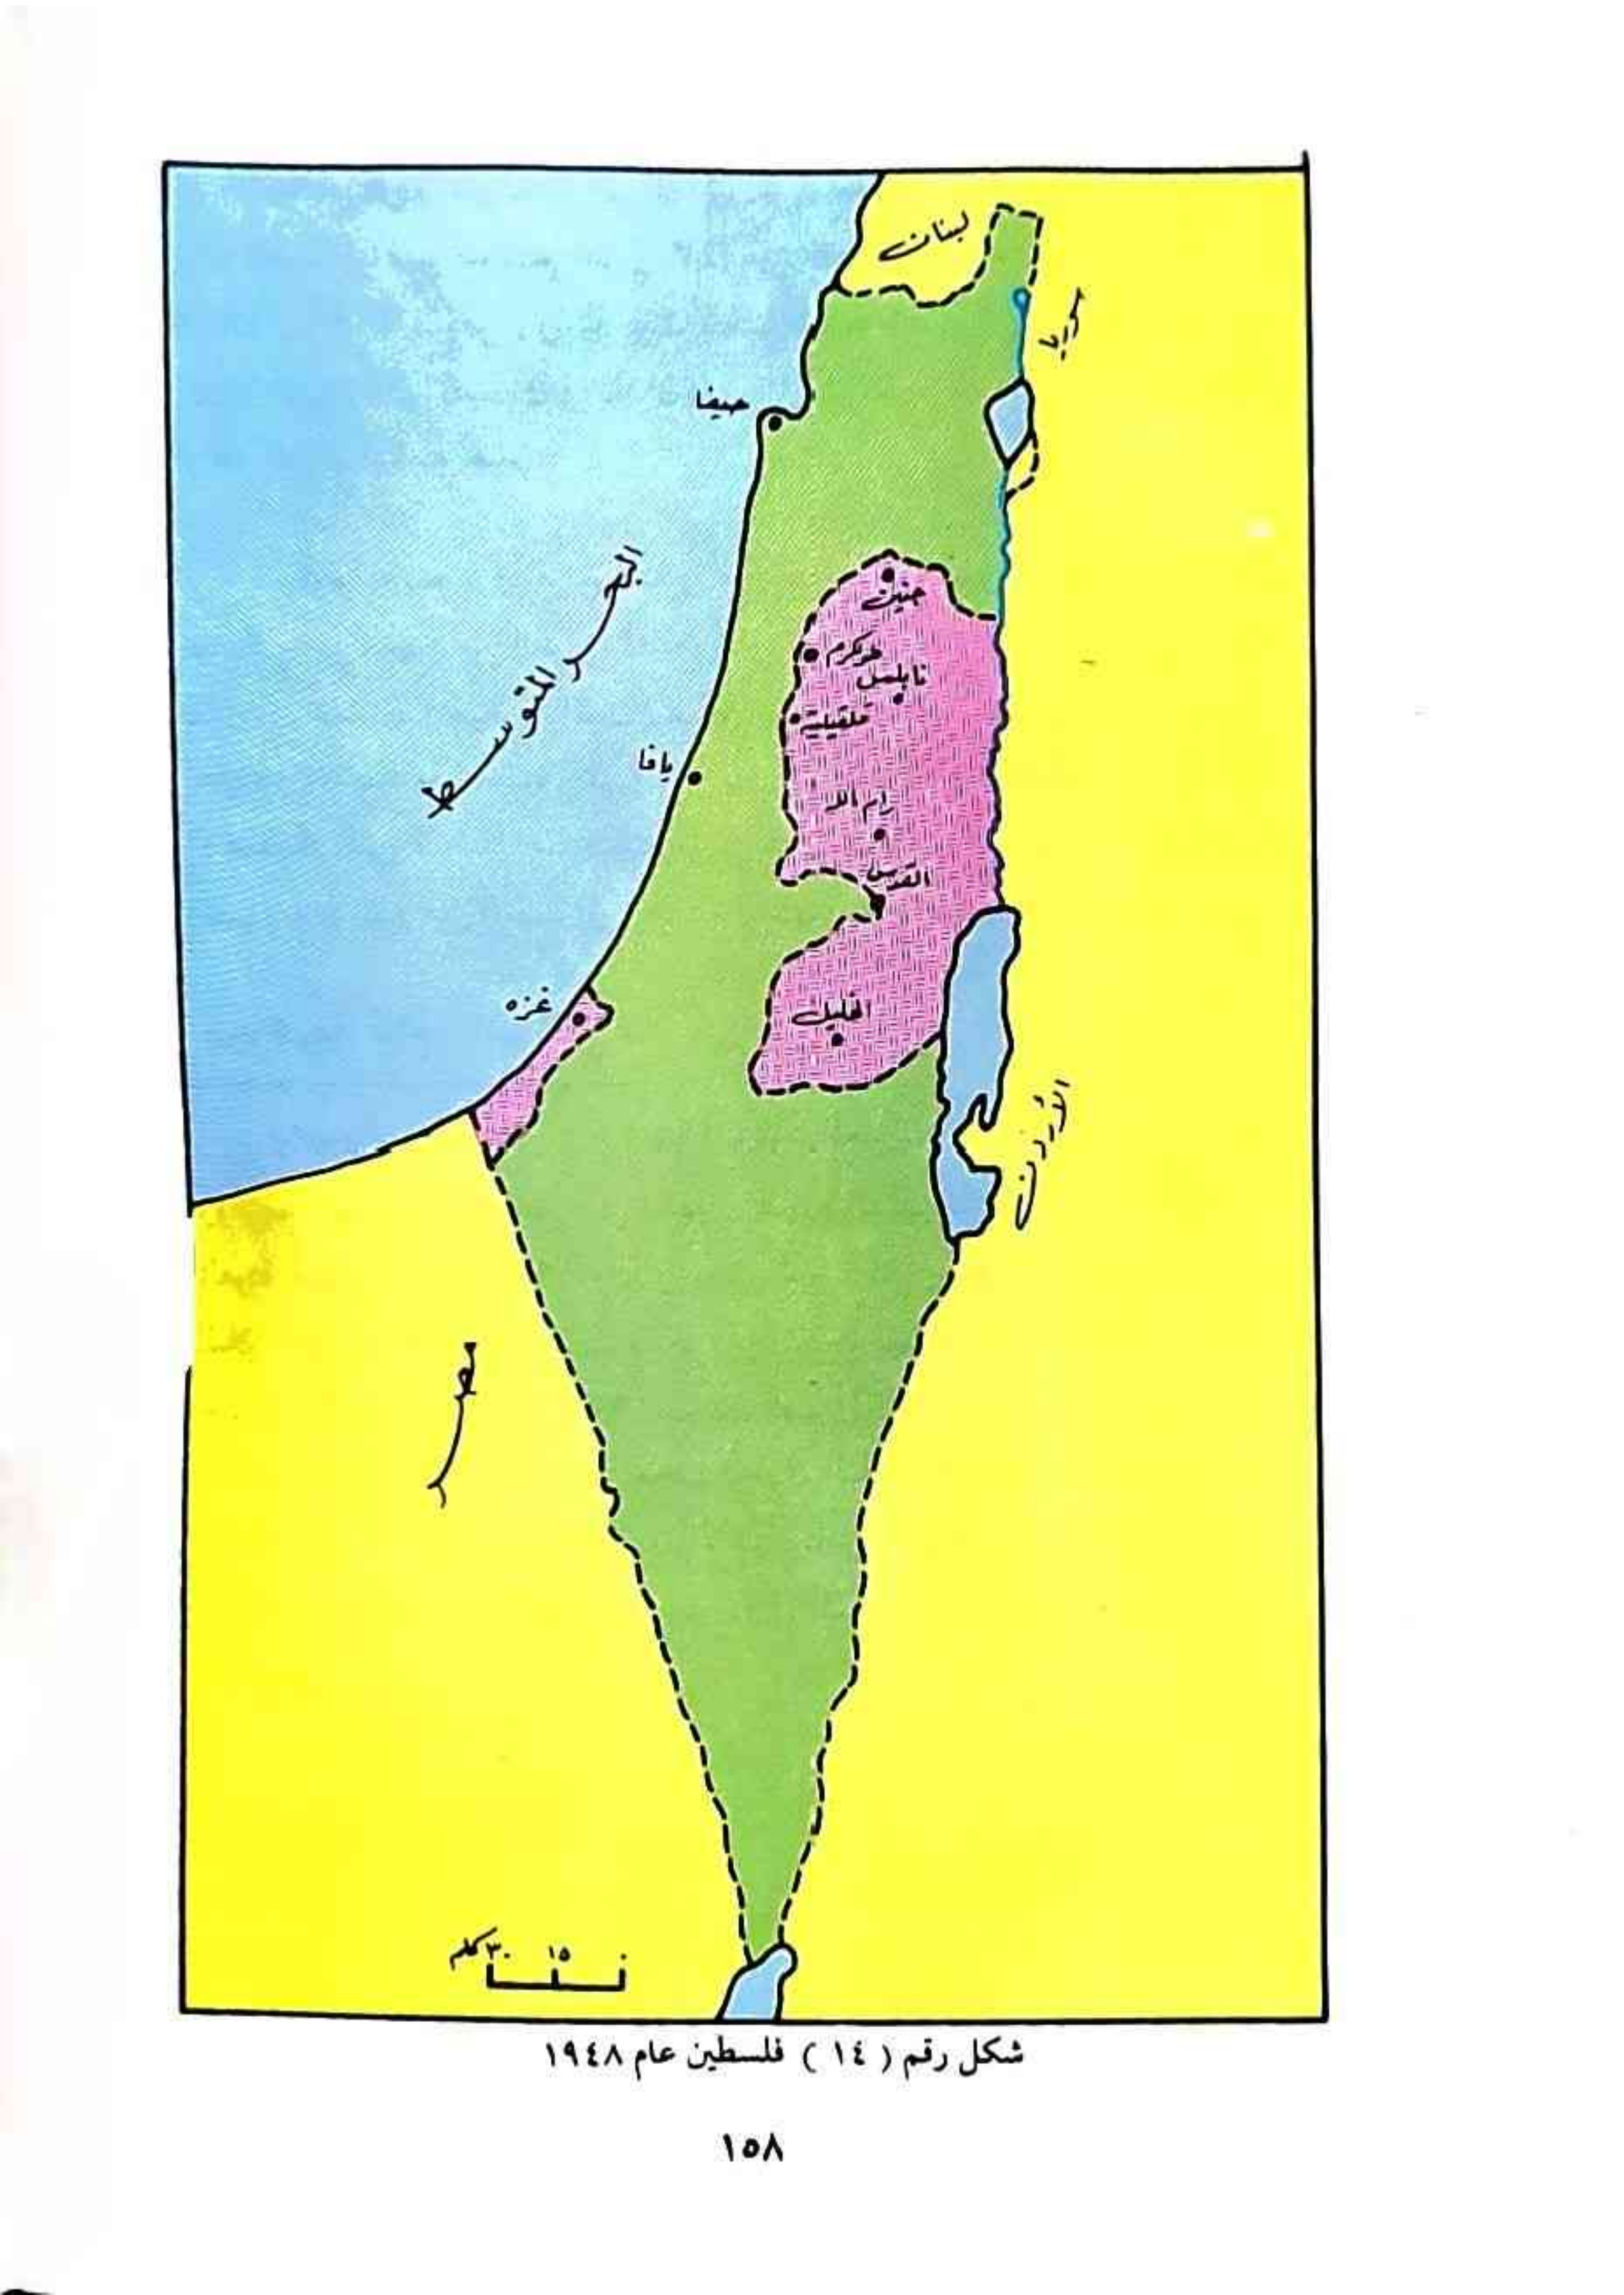 لبنان
سوريا
حيفا
البحر المتوسط
جنين
طولكرم
نابلس
قلقيلية
يافا
رام الله
القدس
الخليل
غزه
الأردن
مصر
٠ ١٥ ٣٠ كلم
شكل رقم ( ١٤ ) فلسطين عام ١٩٤٨
١٥٨